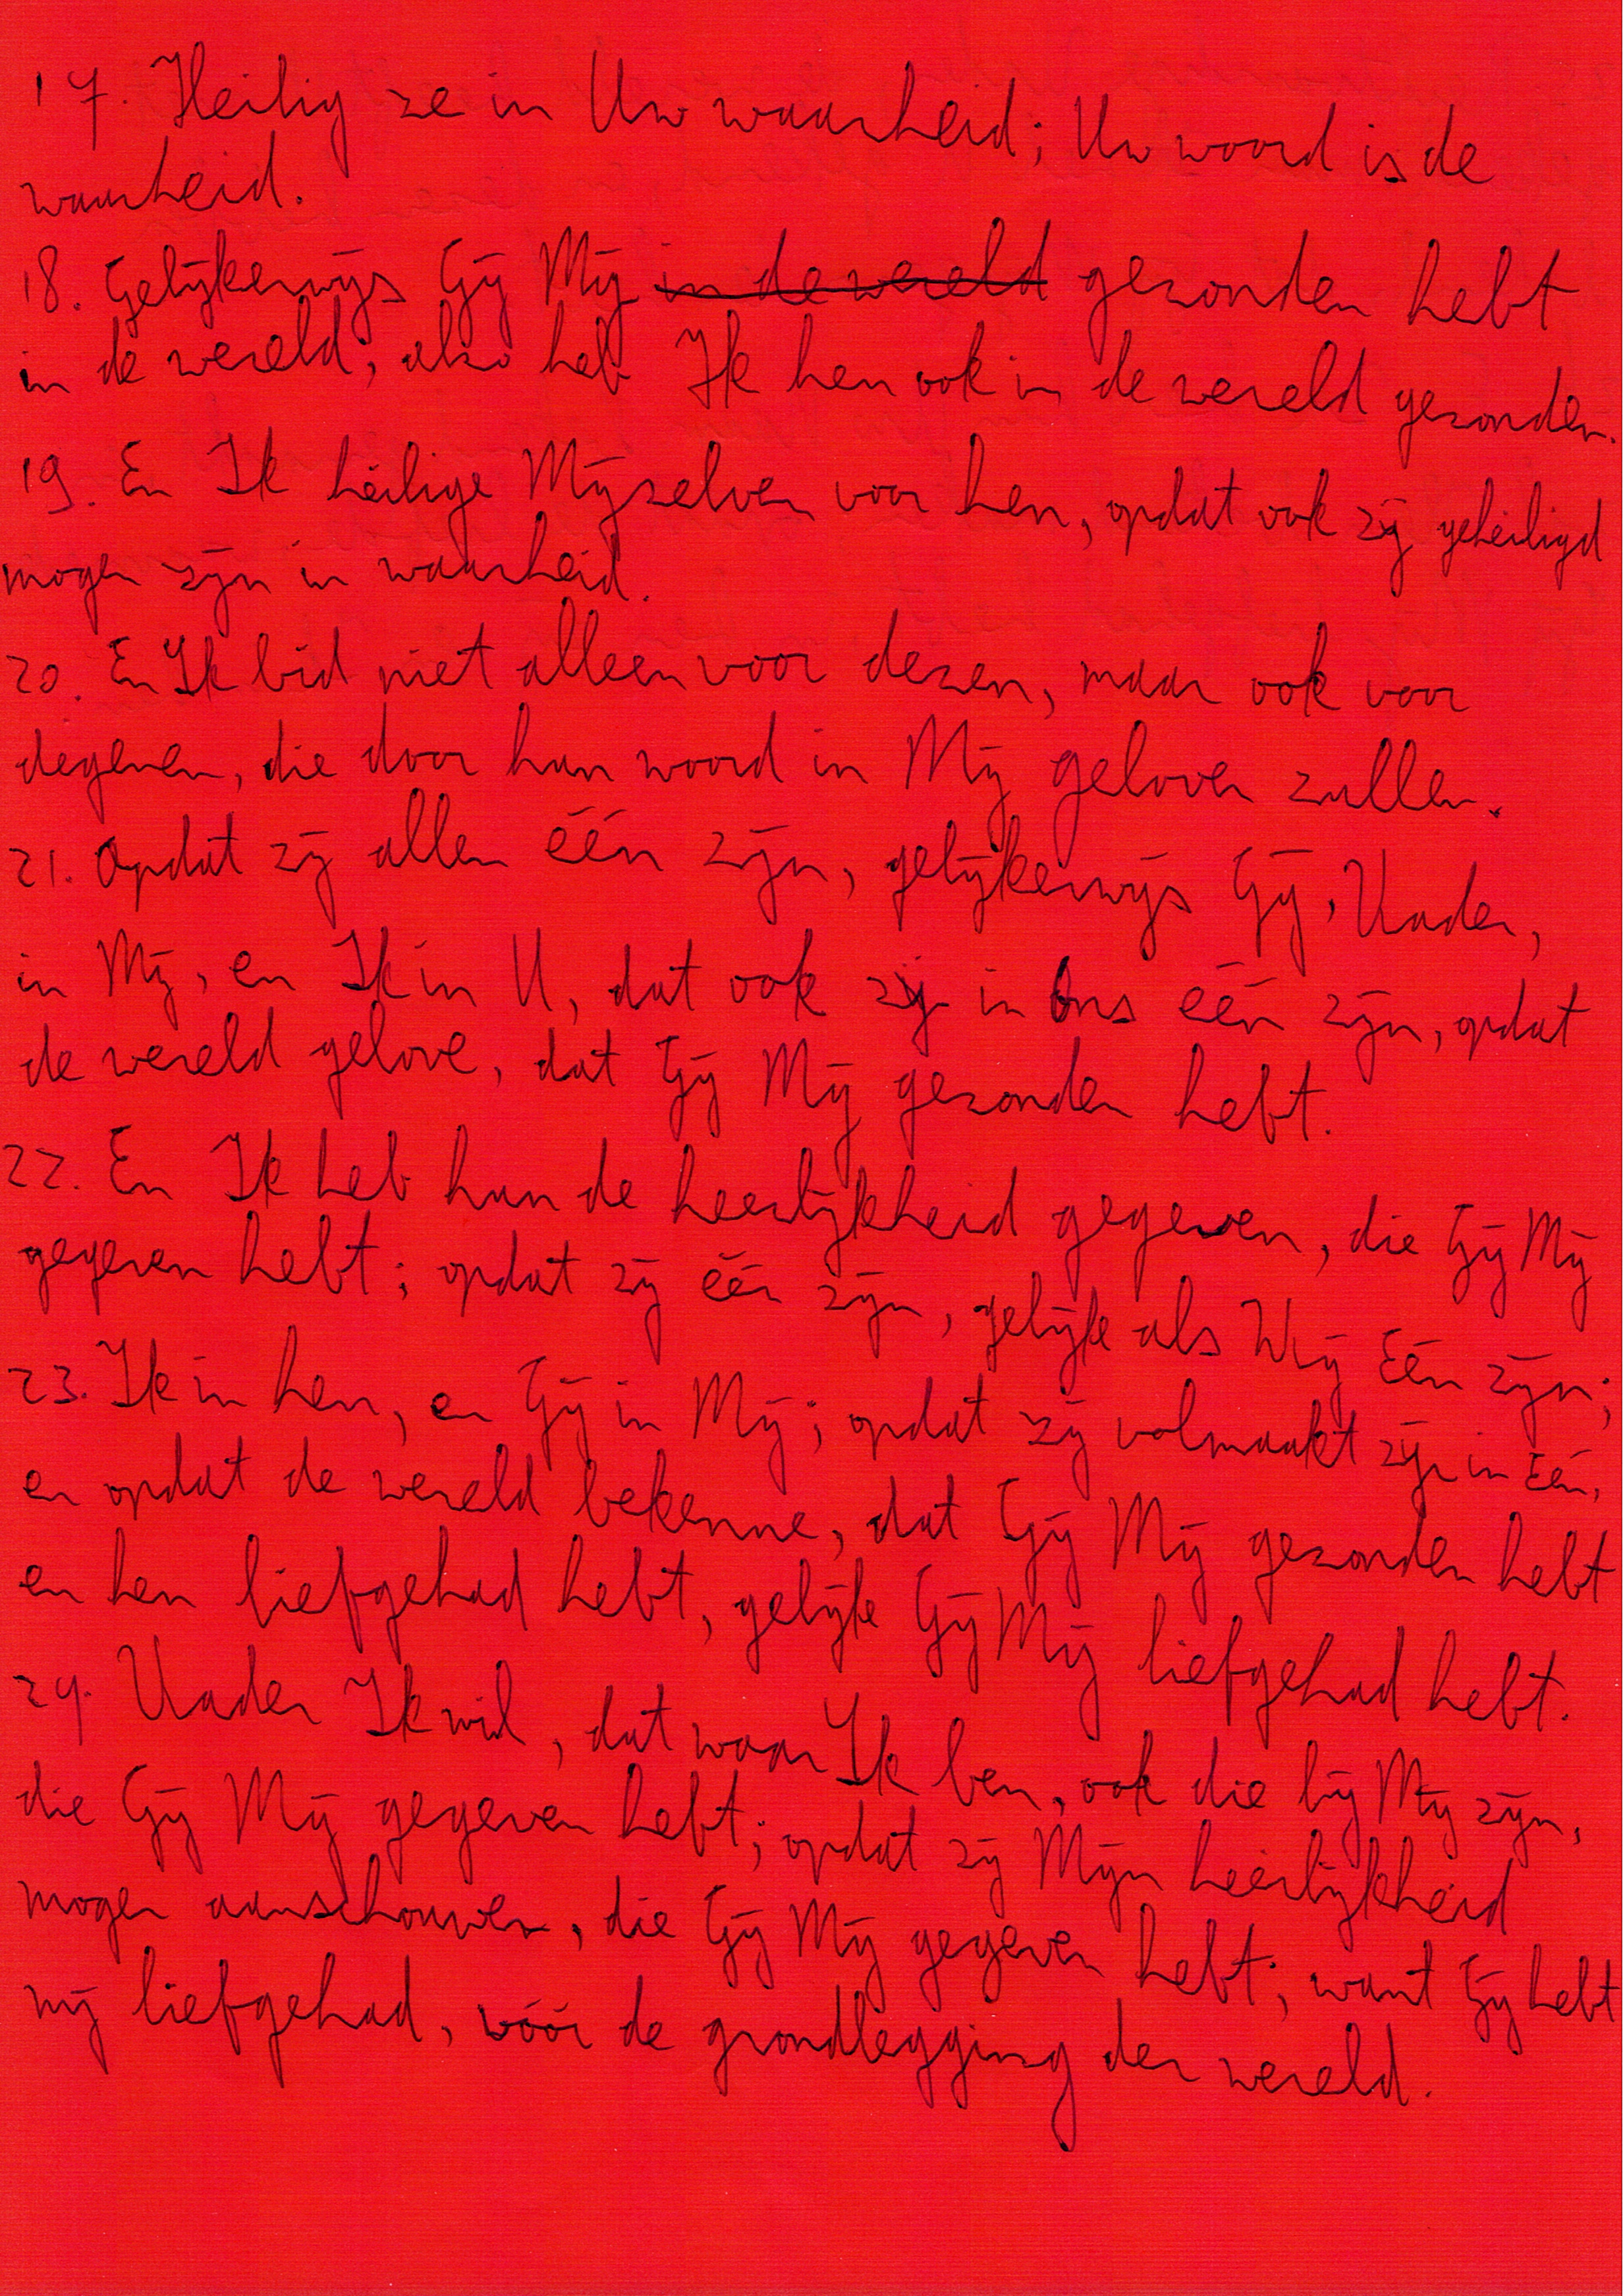 17. Heilig ze in Uw waarheid; Uw woord is de
waarheid.
18. Gelijkerwijs Gij Mij in de wereld gezonden hebt
in de wereld, alzo heb Ik hen ook in de wereld gezonden.
19. En Ik heilige Mijzelven voor hen, opdat ook zij geheiligd
mogen zijn in waarheid.
20. En Ik bid niet alleen voor dezen, maar ook voor
degenen, die door hun woord in Mij geloven zullen.
21. Opdat zij allen één zijn, gelijkerwijs Gij, Vader,
in Mij, en Ik in U, dat ook zij in Ons één zijn, opdat
de wereld gelove, dat Gij Mij gezonden hebt.
22. En Ik heb hun de heerlijkheid gegeven, die Gij Mij
gegeven hebt; opdat zij één zijn, gelijk als Wij Eén zijn;
23. Ik in hen, en Gij in Mij; opdat zij volmaakt zijn in Eén,
en opdat de wereld bekenne, dat Gij Mij gezonden hebt
en hen liefgehad hebt, gelijk Gij Mij liefgehad hebt.
24. Vader Ik wil, dat waar Ik ben, ook die bij Mij zijn,
die Gij Mij gegeven hebt; opdat zij Mijn heerlijkheid
mogen aanschouwen, die Gij Mij gegeven hebt; want Gij hebt
mij liefgehad, vóór de grondlegging der wereld.